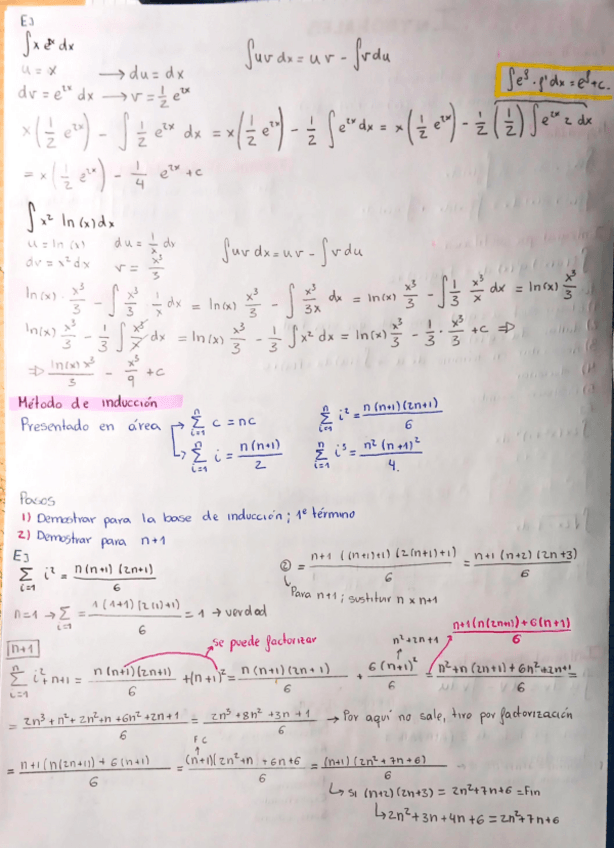 Ej
∫x e^2x dx
∫uv dx = uv - ∫vdu
u = x → du = dx
∫e^f · f' dx = e^f + c.
dv = e^2x dx → v = 1/2 e^2x
x(1/2 e^2x) - ∫ 1/2 e^2x dx = x(1/2 e^2x) - 1/2 ∫e^2x dx = x(1/2 e^2x) - 1/2 (1/2) ∫e^2x 2 dx
= x(1/2 e^2x) - 1/4 e^2x + c
∫x² ln(x)dx
u = ln(x) du = 1/x dx
∫uv dx = uv - ∫vdu
dv = x² dx v = x³/3
ln(x) · x³/3 - ∫ x³/3 · 1/x dx = ln(x) x³/3 - ∫ x³/3x dx = ln(x) x³/3 - ∫ 1/3 x³/x dx = ln(x) x³/3
ln(x) x³/3 - 1/3 ∫ x³/x dx = ln(x) x³/3 - 1/3 ∫x² dx = ln(x) x³/3 - 1/3 · x³/3 + c ⇒
⇒ ln(x) x³/3 - x³/9 + c
Método de inducción
Presentado en área → ∑(i=1, n) c = nc ∑(i=1, n) i² = n(n+1)(2n+1)/6
↳ ∑(i=1, n) i = n(n+1)/2 ∑(i=1, n) i³ = n²(n+1)²/4.
Pasos
1) Demostrar para la base de inducción; 1º término
2) Demostrar para n+1
Ej
∑(i=1, n) i² = n(n+1)(2n+1)/6
② = n+1((n+1)+1)(2(n+1)+1)/6 = n+1(n+2)(2n+3)/6
↳ Para n+1; sustituir n x n+1
n=1 → ∑(i=1) = 1(1+1)(2(1)+1)/6 = 1 → verdad
n+1(n(2n+1))+6(n+1)/6
n+1
se puede factorizar
n²+2n+1
∑(i=1, n) i²+n+1 = n(n+1)(2n+1)/6 + (n+1)² = n(n+1)(2n+1)/6 + 6(n+1)²/6 = n²+n(2n+1)+6n²+2n+1/6 =
= 2n³+n²+2n²+n+6n²+2n+1/6 = 2n³+8n²+3n+1/6 → Por aquí no sale, tiro por factorización
FC
= n+1(n(2n+1)+6(n+1)/6 = (n+1)(2n²+n+6n+6/6 = (n+1)(2n²+7n+6)/6
↳ si (n+2)(2n+3) = 2n²+7n+6 = Fin
↳ 2n²+3n+4n+6 = 2n²+7n+6